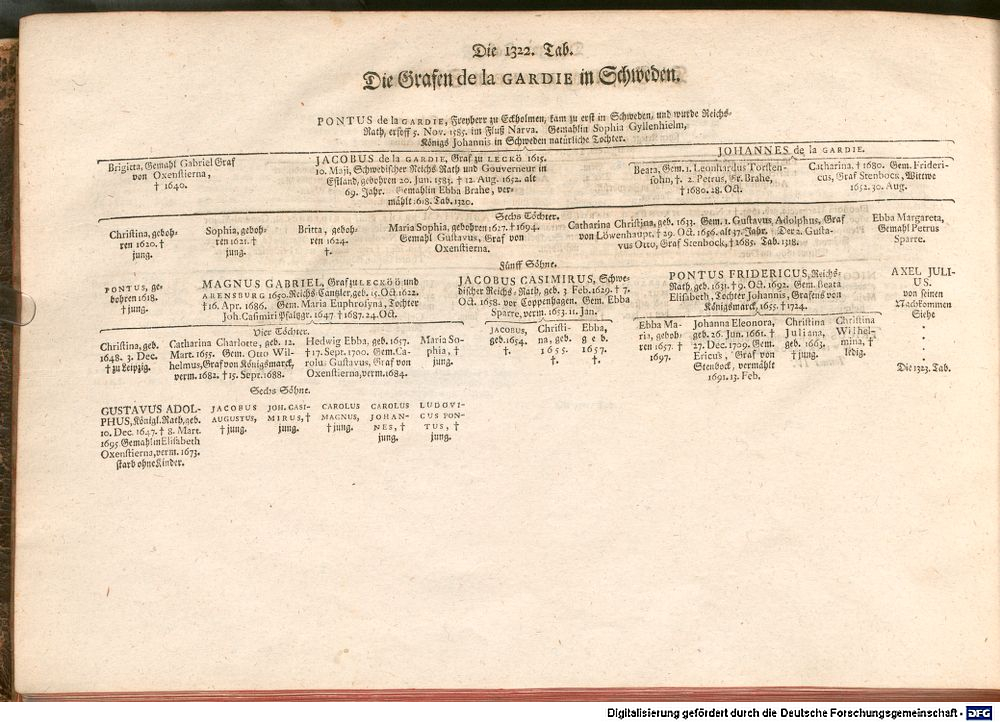 Die 1322. Tab.
Die Grafen de la GARDIE in Schweden.
PONTUS de la GARDIE, Freyherr zu Eckholmen, kam zu erst in Schweden, und wurde Reichs-
Rath, ersoff 5. Nov. 1585. im Fluß Narva. Gemahlin Sophia Gyllenhielm,
Königs Johannis in Schweden natürliche Tochter.
Brigitta, Gemahl Gabriel Graf
von Oxenstierna,
† 1640.
JACOBUS de la GARDIE, Graf zu LECKÖ 1615.
10. Maji, Schwedischer Reichs-Rath und Gouverneur in
Estland, gebohren 20. Jun. 1583. † 12. Aug. 1652. alt
69. Jahr. Gemahlin Ebba Brahe, ver-
mählt 1618. Tab. 1320.
JOHANNES de la GARDIE.
Beata, Gem. 1. Leonhardus Torsten-
sohn, †. 2. Petrus, Gr. Brahe,
† 1680. 28. Oct.
Catharina, † 1680. Gem. Frideri-
cus, Graf Stenbock, Wittwe
1652. 30. Aug.
Sechs Töchter.
Christina, geboh-
ren 1620. †
jung.
Sophia, geboh-
ren 1621. †
jung.
Britta, geboh-
ren 1624.
†.
Maria Sophia, gebohren 1627. † 1694.
Gemahl Gustavus, Graf von
Oxenstierna.
Catharina Christina, geb. 1633. Gem. 1. Gustavus, Adolphus, Graf
von Löwenhaupt. † 29. Oct. 1656. alt 37. Jahr. Der 2. Gusta-
vus Otto, Graf Stenbock, † 1685. Tab. 1318.
Ebba Margareta,
Gemahl Petrus
Sparre.
Fünff Söhne.
PONTUS, ge-
bohren 1618.
† jung.
MAGNUS GABRIEL, Graf zu LECKÖ und
ARENSBURG 1650. Reichs-Cantzler, geb. 15. Oct. 1622.
† 16. Apr. 1686. Gem. Maria Euphrosyna, Tochter
Joh. Casimiri Pfaltzgr. 1647 † 1687. 24. Oct.
JACOBUS CASIMIRUS, Schwe-
discher Reichs-Rath, geb. 3. Feb. 1629. † 7.
Oct. 1658. vor Coppenhagen. Gem. Ebba
Sparre, verm. 1653. 11. Jan.
PONTUS FRIDERICUS, Reichs-
Rath, geb. 1631. † 9. Oct. 1692. Gem. Beata
Elisabeth, Tochter Johannis, Grafens von
Königsmarck, 1655. † 1724.
AXEL JULI-
US.
von seinen
Nachkommen
Siehe
Die 1323. Tab.
Vier Töchter.
Christina, geb.
1648. 3. Dec.
† zu Leipzig.
Catharina Charlotte, geb. 12.
Mart. 1655. Gem. Otto Wil-
helmus, Graf von Königsmarck,
verm. 1682. † 15. Sept. 1688.
Hedwig Ebba, geb. 1657.
† 17. Sept. 1700. Gem. Ca-
rolus Gustavus, Graf von
Oxenstierna, verm. 1684.
Maria So-
phia, †
jung.
JACOBUS,
geb. 1654.
†.
Christi-
na, geb.
1655.
†.
Ebba,
geb.
1657.
†.
Ebba Ma-
ria, geboh-
ren 1657. †
1697.
Johanna Eleonora,
geb. 26. Jun. 1661. †
27. Dec. 1709. Gem.
Ericus, Graf von
Stenbock, vermählt
1691. 13. Feb.
Christina
Juliana,
geb. 1663,
† jung.
Christina
Wilhel-
mina, †
ledig.
Sechs Söhne.
GUSTAVUS ADOL-
PHUS, Königl. Rath, geb.
10. Dec. 1647. † 8. Mart.
1695. Gemahlin Elisabeth
Oxenstierna, verm. 1673.
starb ohne Kinder.
JACOBUS
AUGUSTUS,
† jung.
JOH. CASI-
MIRUS, †
jung.
CAROLUS
MAGNUS,
† jung.
CAROLUS
JOHAN-
NES, †
jung.
LUDOVI-
CUS PON-
TUS, †
jung.
Digitalisierung gefördert durch die Deutsche Forschungsgemeinschaft - DFG